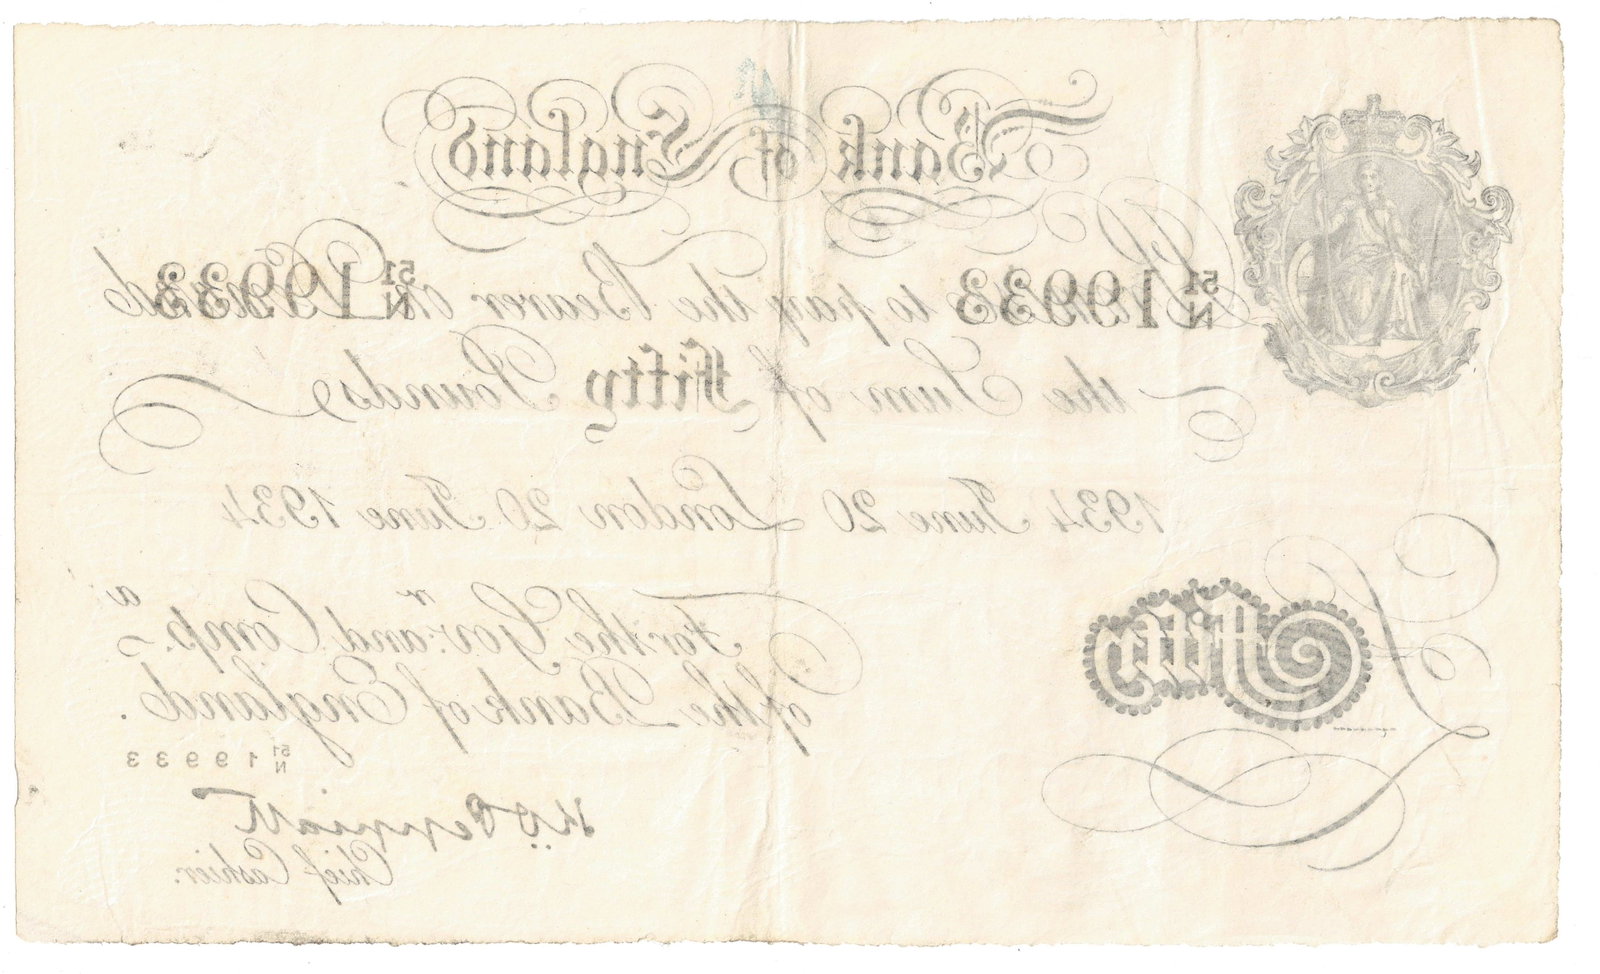 Bank of England
51/N 19933 51/N 19933
Promise to pay the Bearer on Demand
the Sum of Fifty Pounds
1934 June 20 London 20 June 1934
For the Govr. and Compa.
of the Bank of England.
Fifty
51/N 19933
Chief Cashier.